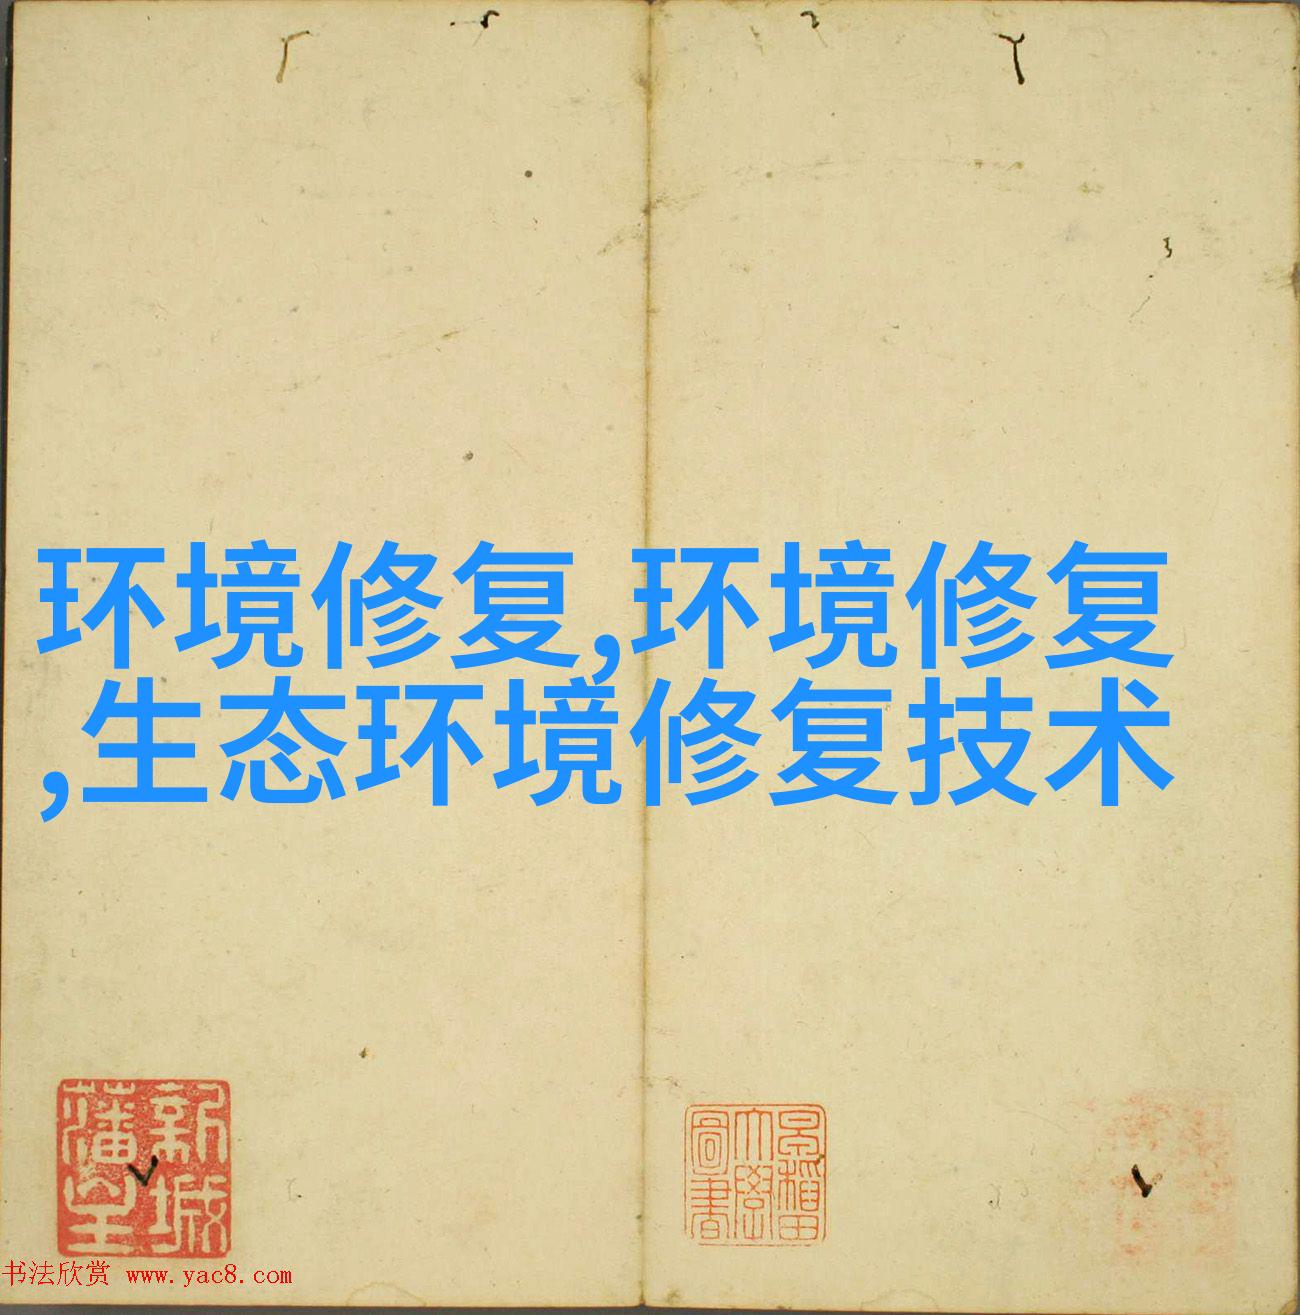 环境修复,环境修复
,生态环境修复技术
新城
藩主
早稻田
大學
圖書
书法欣赏 www.yac8.com